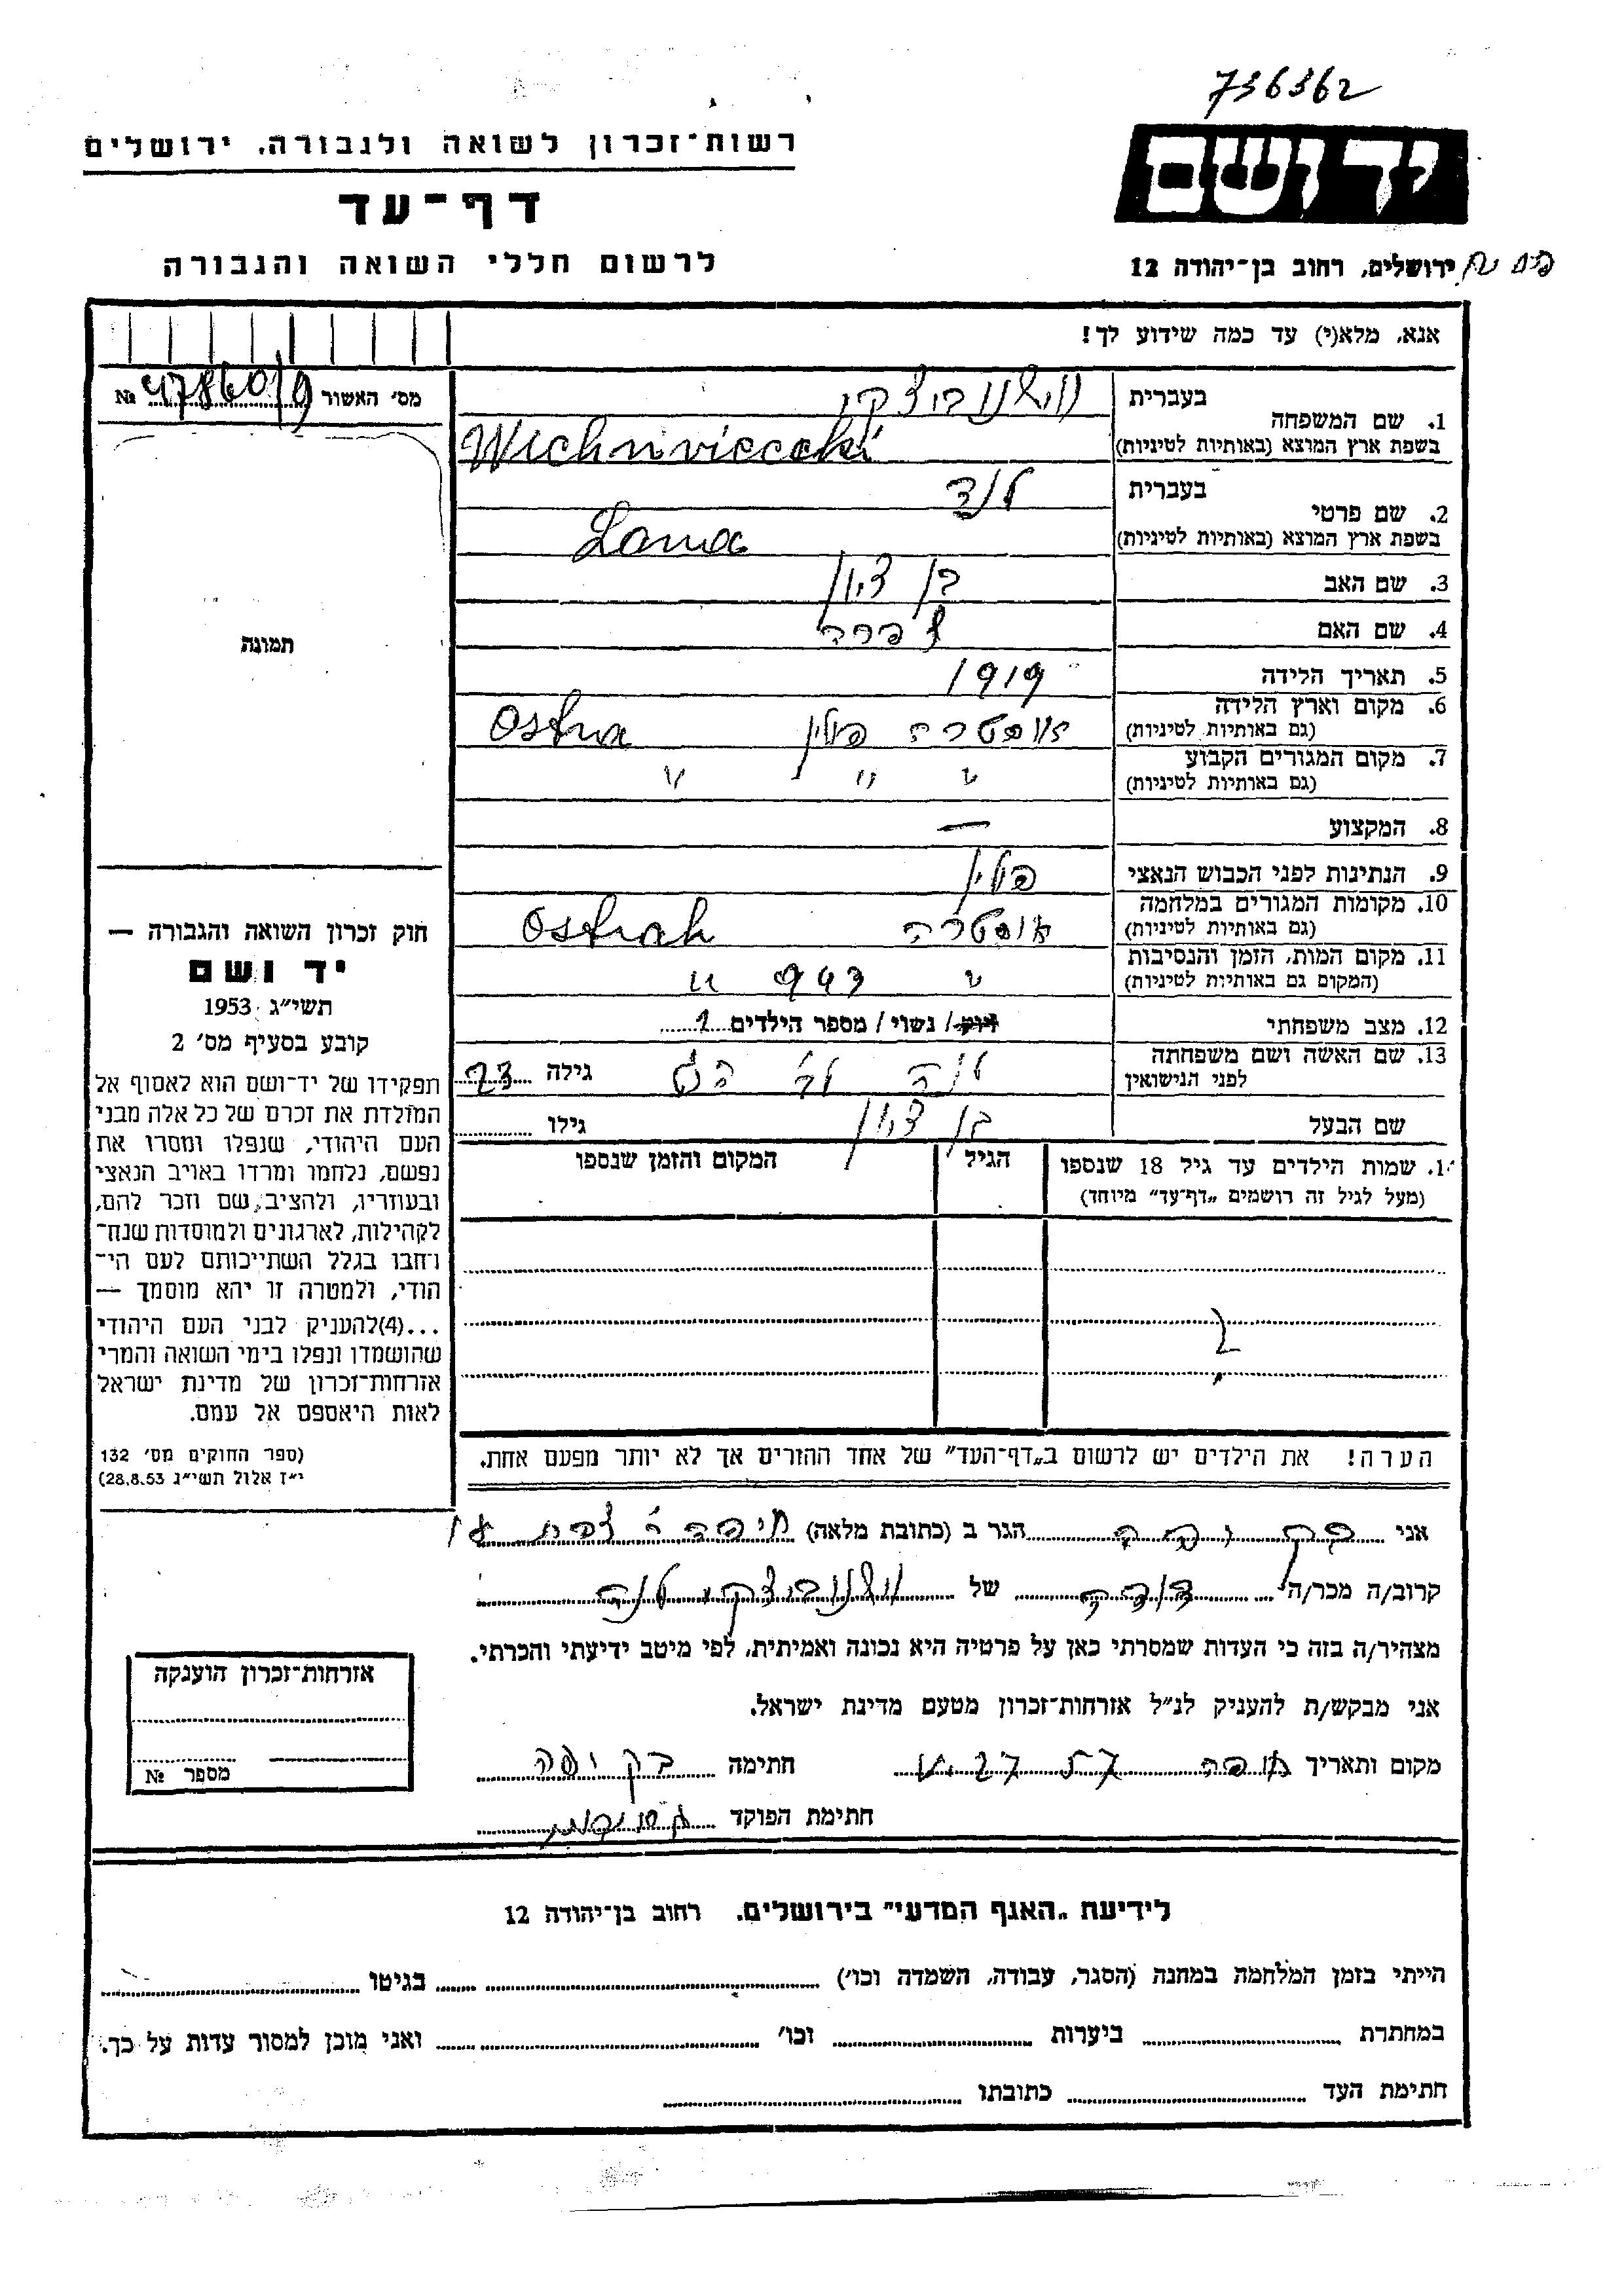 736362
רשות־זכרון לשואה ולגבורה, ירושלים
דף־עד
לרשום חללי השואה והגבורה
יד ושם
ירושלים, רחוב בן־יהודה 12
אנא, מלא(י) עד כמה שידוע לך!
מס׳ האשור 47860/9 №
תמונה
חוק זכרון השואה והגבורה —
יד ושם
תשי״ג 1953
קובע בסעיף מס׳ 2
תפקידו של יד־ושם הוא לאסוף אל
המולדת את זכרם של כל אלה מבני
העם היהודי, שנפלו ומסרו את
נפשם, נלחמו ומרדו באויב הנאצי
ובעוזריו, ולהציב שם וזכר להם,
לקהילות, לארגונים ולמוסדות שנח־
רחבו בגלל השתייכותם לעם הי־
הודי, ולמטרה זו יהא מוסמך —
...(4)להעניק לבני העם היהודי
שהושמדו ונפלו בימי השואה והמרי
אזרחות־זכרון של מדינת ישראל
לאות היאספם אל עמם.
(ספר החוקים מס׳ 132
י״ז אלול תשי״ג 28.8.53)
1. שם המשפחה
בעברית ווישנוביצקי
בשפת ארץ המוצא (באותיות לטיניות) Wichnivieccki
2. שם פרטי
בעברית
בשפת ארץ המוצא (באותיות לטיניות) Lana
3. שם האב בן ציון
4. שם האם צפרה
5. תאריך הלידה 1919
6. מקום וארץ הלידה
(גם באותיות לטיניות) אוסטרה פולין Ostra
7. מקום המגורים הקבוע
(גם באותיות לטיניות) " " "
8. המקצוע —
9. הנתינות לפני הכבוש הנאצי פולין
10. מקומות המגורים במלחמה
(גם באותיות לטיניות) אוסטרה Ostrah
11. מקום המות, הזמן והנסיבות
(המקום גם באותיות לטיניות) "
12. מצב משפחתי רווק / נשוי / מספר הילדים 1
13. שם האשה ושם משפחתה
לפני הנישואין לנה גילה 23
שם הבעל בן ציון גילו
14. שמות הילדים עד גיל 18 שנספו
(מעל לגיל זה רושמים „דף־עד״ מיוחד)
הגיל
המקום והזמן שנספו
?
הערה! את הילדים יש לרשום ב„דף־העד״ של אחד ההורים אך לא יותר מפעם אחת.
אני הגר ב (כתובת מלאה)
קרוב/ה מכר/ה דודה של ווישנוביצקי לנה
מצהיר/ה בזה כי העדות שמסרתי כאן על פרטיה היא נכונה ואמיתית, לפי מיטב ידיעתי והכרתי.
אני מבקש/ת להעניק לנ״ל אזרחות־זכרון מטעם מדינת ישראל.
מקום ותאריך חתימה
חתימת הפוקד
אזרחות־זכרון הוענקה
מספר №
לידיעת „האגף המדעי״ בירושלים, רחוב בן־יהודה 12
הייתי בזמן המלחמה במחנה (הסגר, עבודה, השמדה וכו׳) בגיטו
במחתרת ביערות וכו׳ ואני מוכן למסור עדות על כך.
חתימת העד כתובתו